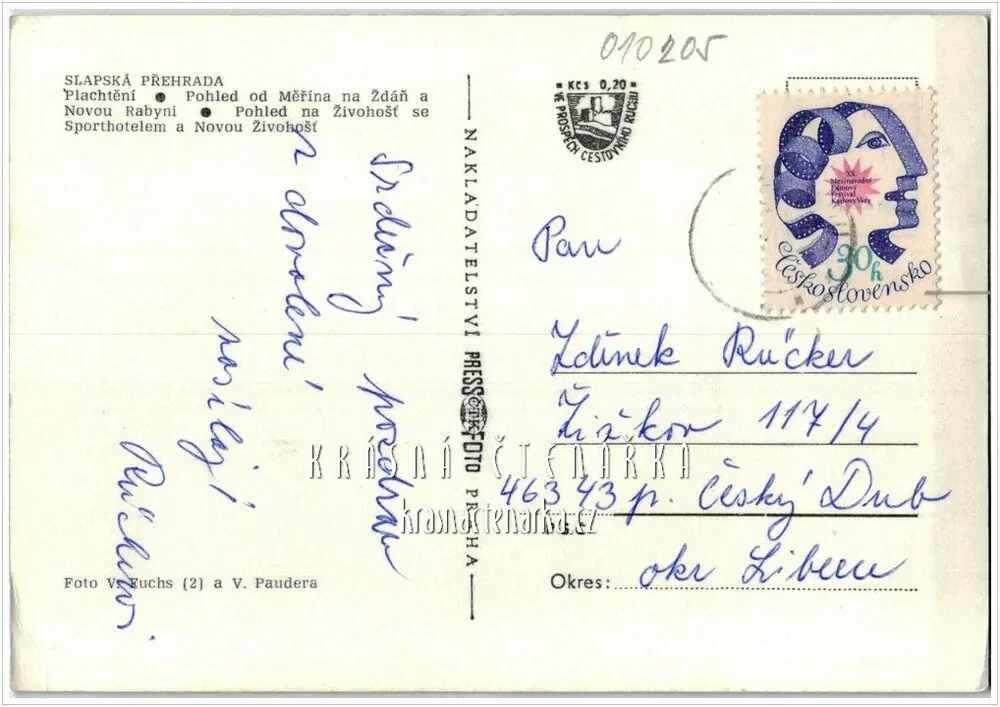 010205
SLAPSKÁ PŘEHRADA
Plachtění ● Pohled od Měřína na Ždáň a
Novou Rabyni ● Pohled na Živohošť se
Sporthotelem a Novou Živohošť
Srdečný pozdrav
z dovolené
posílají
Rückerovi
Foto V. Fuchs (2) a V. Paudera
NAKLADATELSTVÍ PRESSFOTO PRAHA
ČTK
Kčs 0,20
VE PROSPĚCH CESTOVNÍHO RUCHU
XX.
Mezinárodní
Filmový
Festival
Karlovy Vary
30h
Československo
Pan
Zdeněk Rücker
Žižkov 117/4
463 43 p. Český Dub
Okres: okr Liberec
KRÁSNÁ ČTENÁŘKA
krasnactenarka.cz